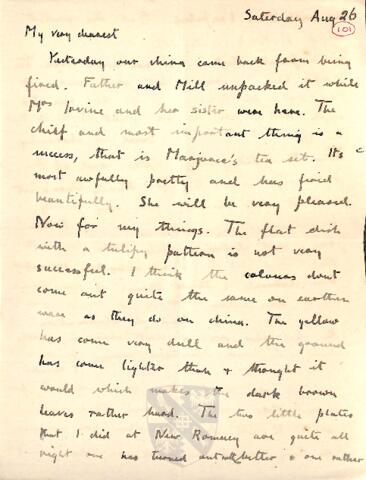 Saturday Aug 26
(10)
My very dearest
Yesterday our china came back from being
fired. Father and Mill unpacked it while
Mrs Irvine and her sister were here. The
chief and most important thing is a
success, that is Marjorie's tea set. Its
most awfully pretty and has fired
beautifully. She will be very pleased.
Now for my things. The flat dish
with a tulipy pattern is not very
successful. I think the colours dont
come out quite the same on earthen
ware as they do on china. The yellow
has come very dull and the ground
has come lighter than I thought it
would which makes the dark brown
leaves rather hard. The two little plates
that I did at New Romney are quite all
right one has turned out better & one rather